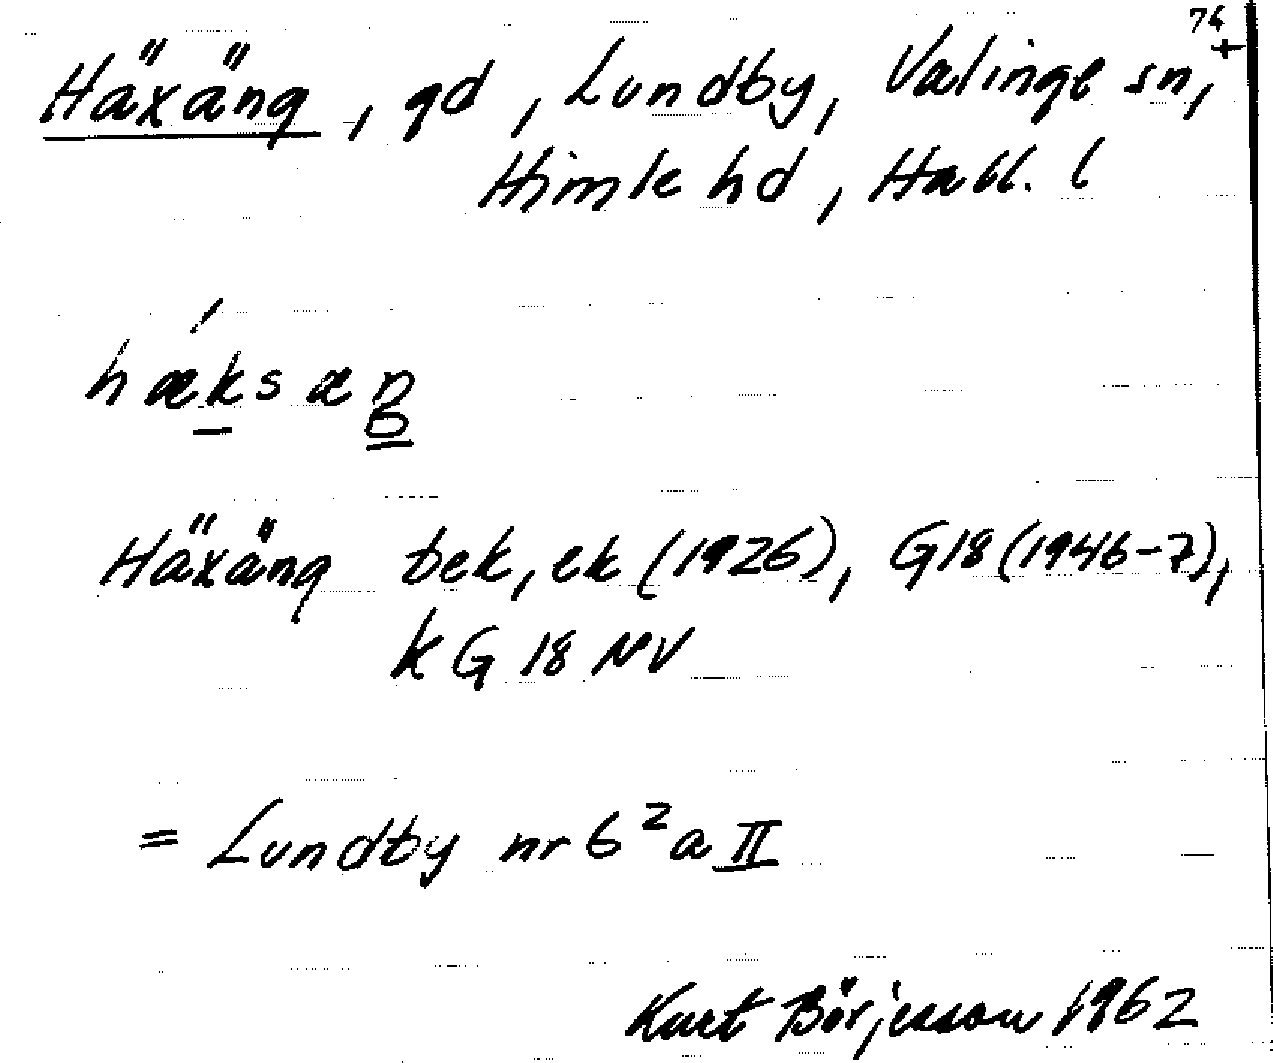 74
+
Häxäng, gd, Lundby, Valinge sn,
Himle hd, Hall. l
hæksæŋ
Häxäng bek, ek (1926), G18 (1946-7),
k G 18 NV
= Lundby nr 6² a II
Kurt Börjesson 1962